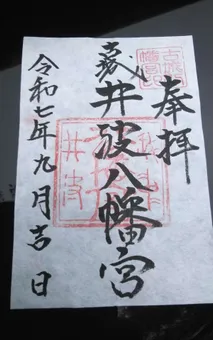 奉拝
井波八幡宮
令和七年九月吉日